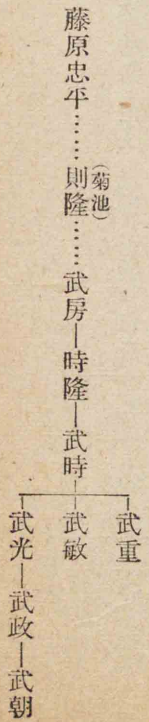 藤原忠平……則隆……武房―時隆―武時
(菊池)
武重
武敏
武光―武政―武朝